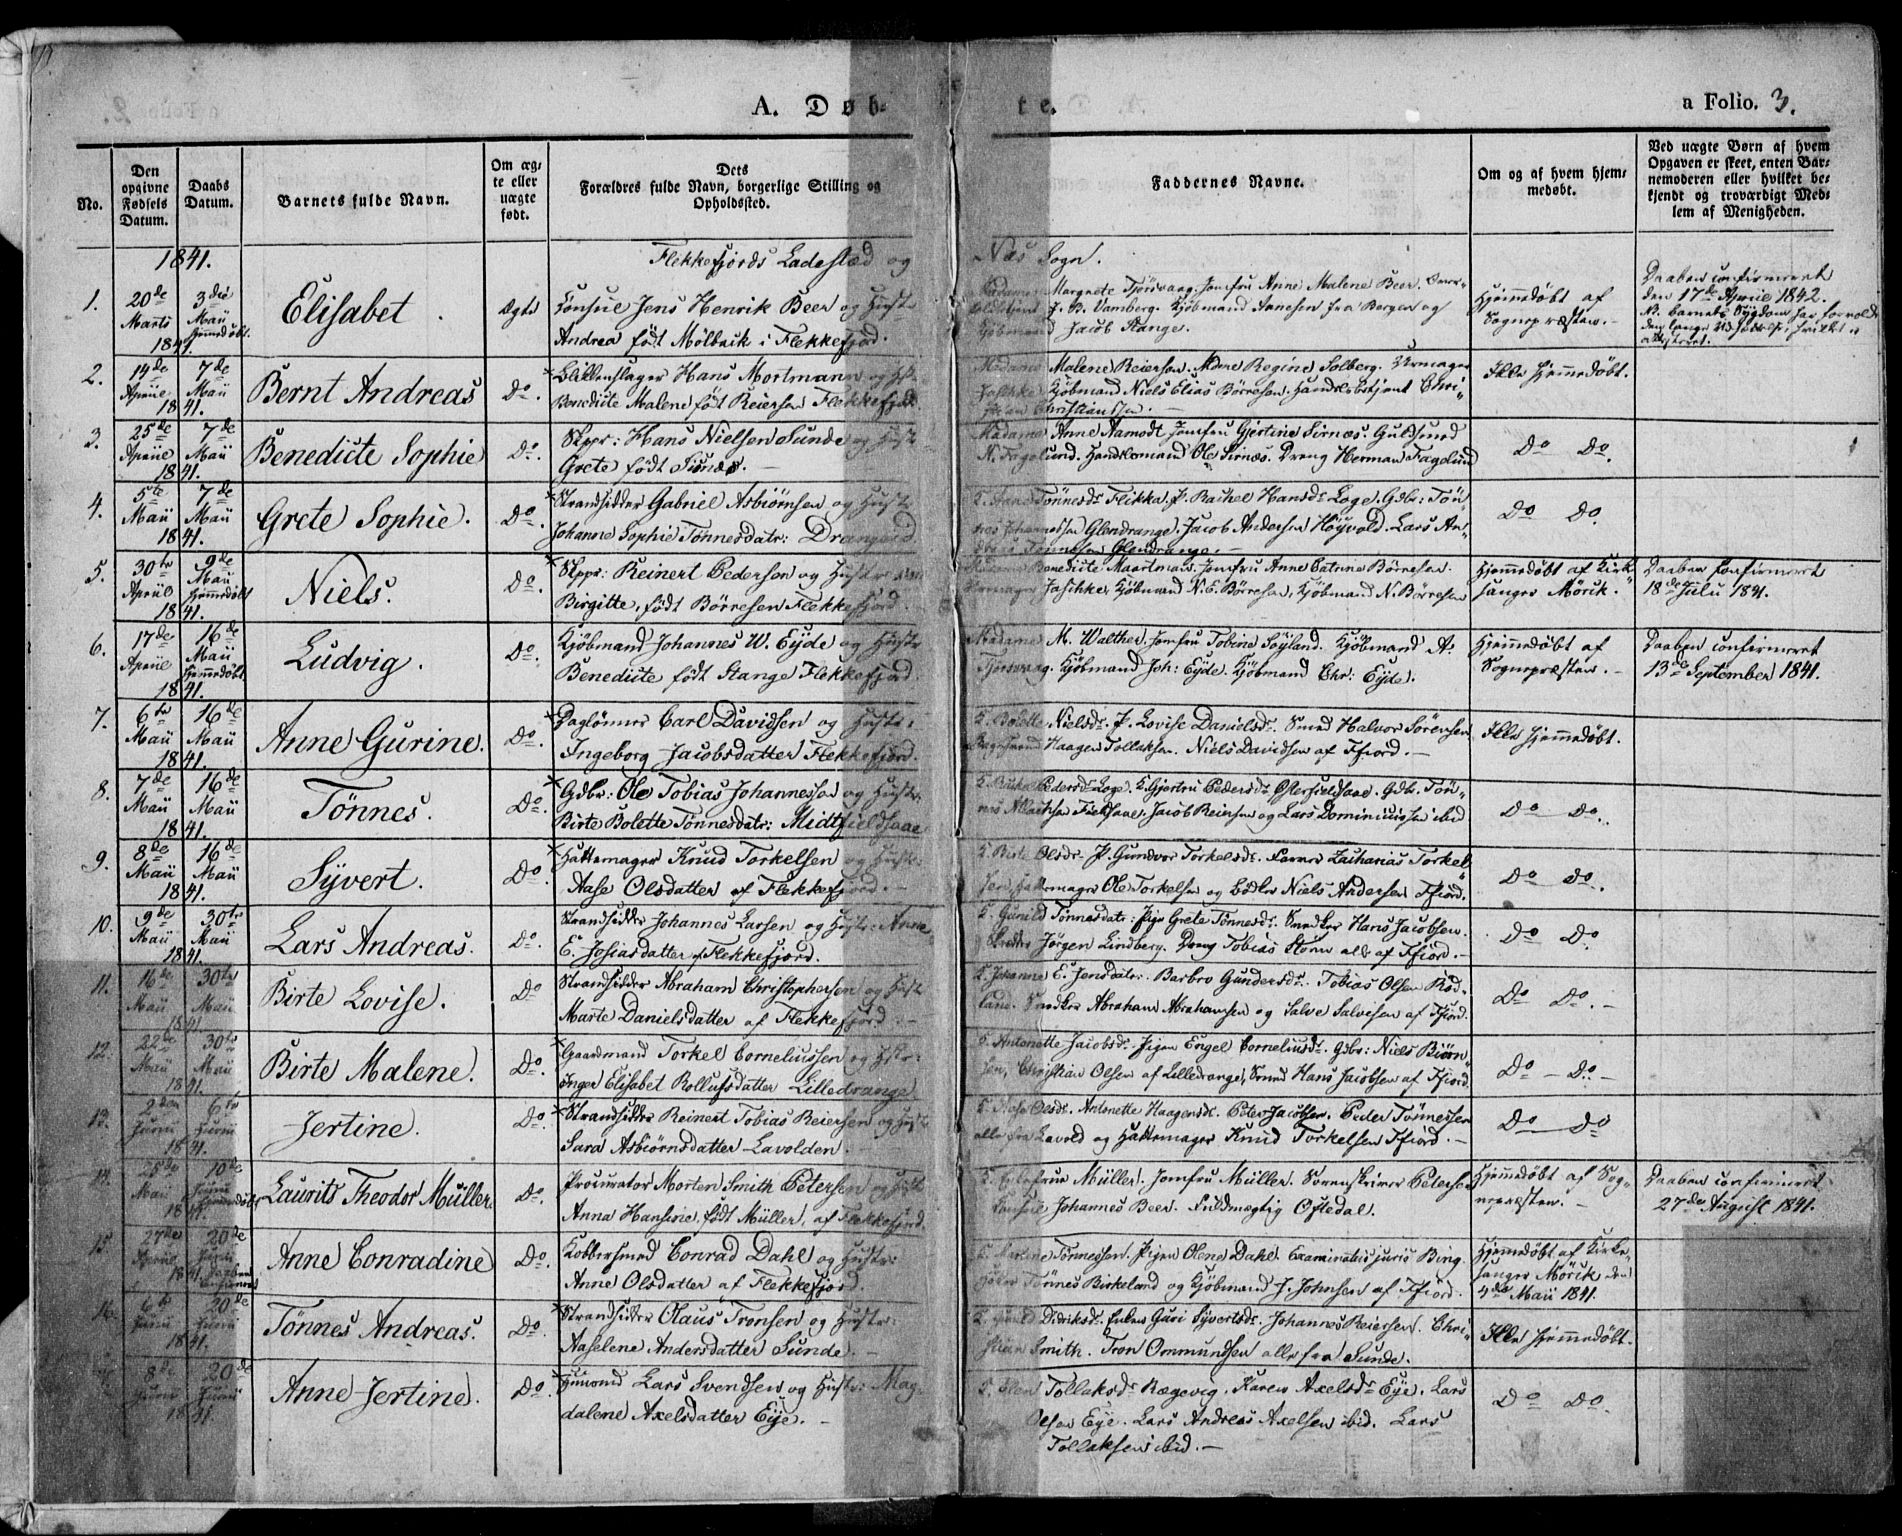 A. Døb-
te.
a Folio. 3.
No.
Den
opgivne
Fødsels
Datum.
Daabs
Datum.
Barnets fulde Navn.
Om æg-
te eller
uægte
født.
Dets
Forældres fulde Navn, borgerlige Stilling og
Opholdssted.
Faddernes Navne.
Om og af hvem hjem-
medøbt.
Ved uægte Børn af hvem
Opgaven er skeet, enten Bar-
nemoderen eller hvilket be-
kjendt og troværdigt Med-
lem af Menigheden.
1841.
Flekkefjords Ladestæd og
Næs Sogn.
1.
20de
Marts
1841.
3die
Maii
hjemmedøbt.
Elisabet.
Ægte
Consul Jens Henrik Beer og Hustr.
Andrea født Mølbaik i Flekkefjord.
Margrete Tjorsvaag. Jomfru Anne Malene Beer.
J. B. Vamberg. Kjøbmand Janesen fra Bergen og
Kjøbmand Jacob Stange.
Hjemmedøbt af
Sognepræsten.-
Daaben confirmeret
den 17de April 1842.
NB. barnets Sygdom har forvoldt
2.
14de
April
1841.
7de
Maii
Bernt Andreas
Do.
Blikkenslager Hans Mortmann og Hst.
Benedicte Malene født Reiersen Flekkefjord.
Madame Malene Reiersen. Mdme Regine Solberg. Urmager
Jaschke. Kjøbmand Niels Elias Børresen. Handelsbetjent Chri-
stian Christiansen.-
Ikke Hjemmedøbt.
3.
25de
April
1841.
7de
Maii
Benedicte Sophie
Do.
Skppr: Hans Nielsen Sunde og Hustr
Grete født Sirnæs.-
Madame Anne Aamodt Jomfru Gjertine Sirnæs. Guldsmed
N. Fagelund. Handelsmand Ole Sirnæs. Dreng Herman Fagelund
Do Do.
4.
5te
Maii
1841.
7de
Maii
Grete Sophie.
Do.
Strandsidder Gabriel Asbiørnsen og Hustr
Johanne Sophie Tønnesdatr: Drangeid.
Tønnesdr Flikka. P. Rachel Hansdr Loge. Gdbr: Tøn-
nes Johannessen Glendrange. Jacob Andersen Høyvold. Lars An-
dreas Tønnesen Glendrange.-
Do Do.
5.
30te
April
1841.
9de
Maii
Hjemmedøbt
Niels.
Do.
Skppr: Reinert Pedersen og Hustr
Birgitte, født Børresen Flekkefjord.
Benedicte Maartmann. Jomfru Anne Catrine Børresen.
Urmager Jaschke, Kjøbmand N. E. Børresen, Kjøbmand N. Børresen
Hjemmedøbt af Kirk-
sanger Mörik.
Daaben confirmeret
18de Julii 1841.
6.
17de
April
1841.
16de
Maii
Hjemmedøbt.
Ludvig.
Do.
Kjøbmand Johannes W. Eyde og Hustr
Benedicte født Stange Flekkefjord.
Madame M. Walther. Jomfru Tobine Søyland. Kjøbmand A.
Tjorsvaag. Kjøbmand Joh: Eyde. Kjøbmand Chr: Eyde.
Hjemmedøbt af
Sognepræsten.-
Daaben confirmeret
13de September 1841.
7.
6te
Maii
1841.
16de
Maii
Anne Gurine.
Do.
Dagløner Carl Davidsen og Hustr.
Ingeborg Jacobsdatter Flekkefjord.
K. Bolette Nielsdr. P. Lovise Danielsdr. Smed Halvor Sørensen
Haagen Tollaksen. Niels Davidsen af Ffiord.-
Ikke Hjemmedøbt.
8.
7de
Maii
1841.
16de
Maii
Tønnes.
Do.
Gdbr: Ole Tobias Johannessen og Hustr.
Birte Bolette Tønnesdatr: Midtfieldsaae
Pedersdr Loge. K. Gjertru Pedersdr Østerfieldsaae. Gdbr. Tøn-
nes Fieldsaae. Jacob Reinsen og Lars Dominicusen ibid
Do Do.
9.
8de
Maii
1841.
16de
Maii
Syvert.
Do.
Hattemager Knud Torkelsen og Hustr.
Aase Olsdatter af Flekkefjord.-
K. Birte Olsdr. P. Gundvor Torkelsdr. Farver Zacharias Torkel-
sen, Hattemager Ole Torkelsen og Bødker Niels Andersen Ffiord.
Do Do.
10.
9de
Maii
1841.
30te
Maii
Lars Andreas.
Do.
Strandsidder Johannes Larsen og Hustr: Anne
E. Josiasdatter af Flekkefjord.
K. Gunild Tønnesdatr: Pige Grete Tønnesdr. Snedker Hans Jacobsen.
Jørgen Lindberg. Dreng Tobias Storm alle af Ffiord.-
Do Do.
11.
16de
Maii
1841.
30te
Maii
Birte Lovise.
Do
Strandsidder Abraham Christophersen og Hustr
Marte Danielsdatter af Flekkefjord.-
K. Johanne E. Jensdatr: Barbro Gundersdr. Tobias Olsen Rød-
land. Snedker Abraham Abrahamsen og Salve Salvesen af Ffiord.
Do Do.-
12.
22de
Maii
1841.
30te
Maii
Birte Malene.
Do.
Gaardmand Torkel Corneliussen og Hstr:
Inger Elisabet Rollufsdatter Lilledrange
K. Antonette Jacobsdr. Pigen Engel Corneliusdr. Gdbr: Niels Biørn-
sen, Christian Olsen af Lilledrange, Smed Hans Jacobsen af Ffiord.
Do - Do.-
13.
2den
Junii
1841.
6te
Junii
Jertine.
Do.
Strandsidder Reinert Tobias Reiersen og Hustr
Sara Asbiørnsdatter Lavolden.
K. Aase Olsdr. Antonette Haagensdr. Peter Jacobsen. Peder Tønnessen
alle fra Lavold og Hattemager Knud Torkelsen Ffiord.-
Do Do
14.
25de
Maii
1841.
10de
Junii
Hjemmedøbt
Laurits Theodor Müller.
Do.
Procurator Morten Smith Petersen og Hustr
Anna Hansine, født Müller, af Flekkefjord.
Müller. Jomfru Müller. Sorenskriver Petersen
Consul Johannes Beer. Fuldmægtig Oftedal.
Hjemmedøbt af Sog-
nepræsten.-
Daaben confirmeret
27de August 1841.
15
27de
April
1841.
20de
Junii
Daaben
confirmeret
Anne Conradine
Do.
Kobbersmed Conrad Dahl og Hustr:
Anne Olsdatter af Flekkefjord.
Tønnessen. Pigen Olene Dahl. Examinatus juris Bing.
Tønnes Birkeland og Kjøbmand J. Johnsen af Ffiord.
Hjemmedøbt af Kirke-
sanger Mörik den
4de Maii 1841.
16.
6te
Junii
1841.
20de
Junii
Tønnes Andreas.
Do.
Strandsidder Olaus Tronsen og Hustr:
Aaselene Andersdatter Sunde.-
Didriksdr. Enken Guri Syvertsdr. Johannes Reiersen. Chri-
stian Smith. Tron Ommundsen alle fra Sunde.
Ikke Hjemmedøbt.
8de
Junii
1841.
20de
Junii
Anne Jertine.
Do.
Huusmd Lars Svendsen og Hustr: Mag-
dalene Axelsdatter Eye.-
Tollaksdr Rægevig. Karen Axelsdr Eye. Lars
Olsen Eye. Lars Andreas Axelsen ibid. Lars
Tollaksen ibid.-
Do Do.